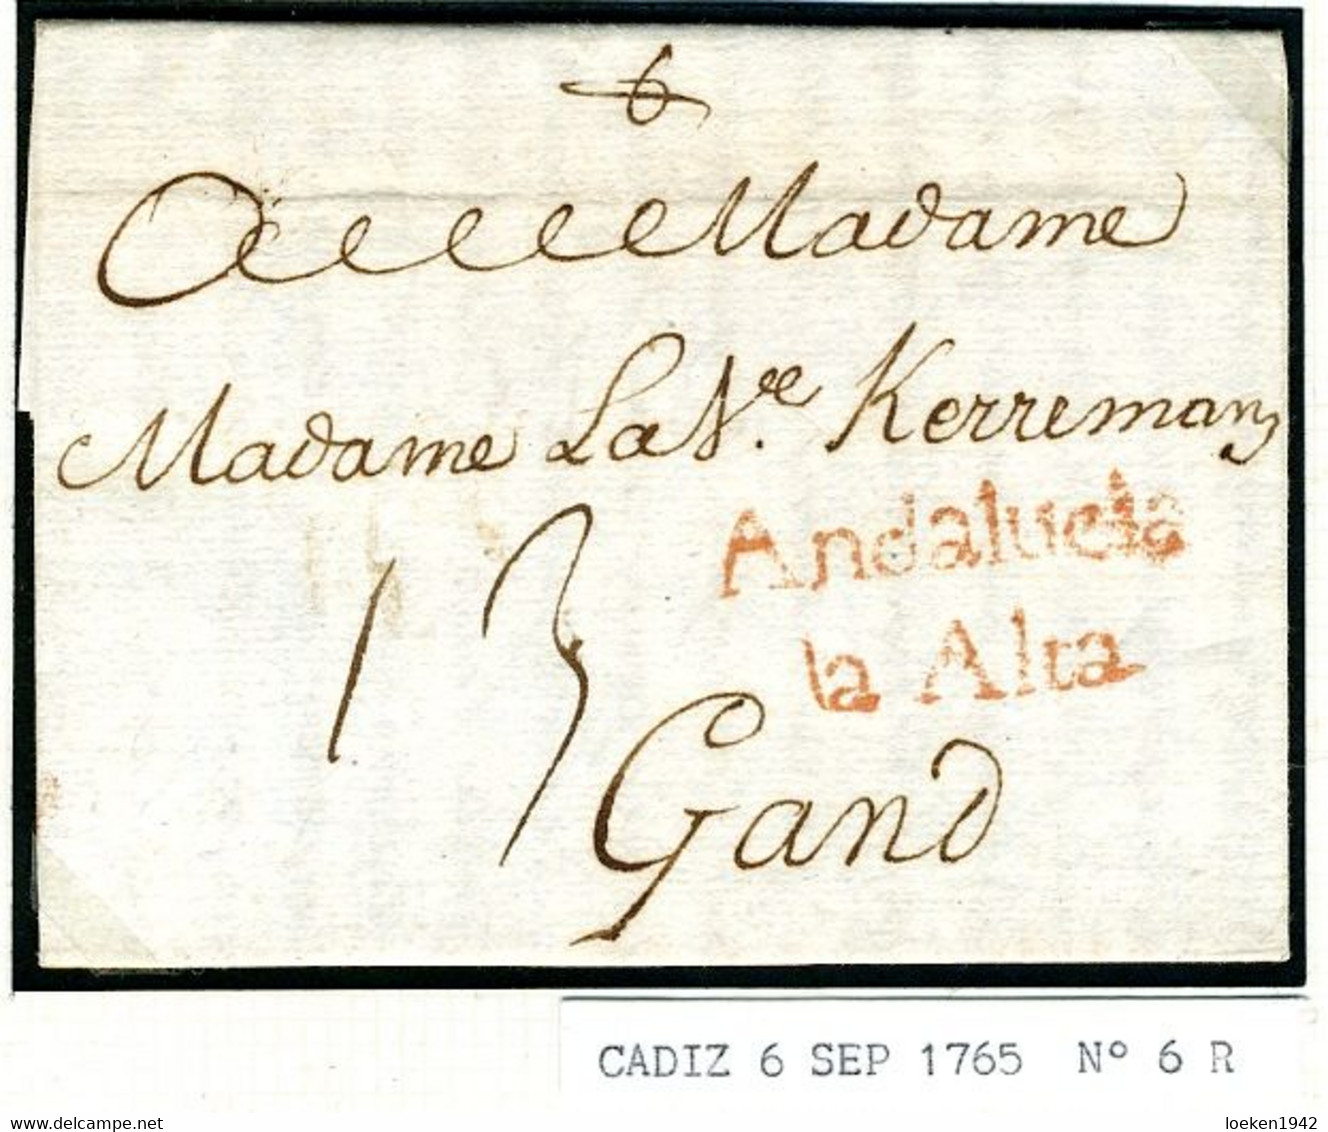 6
A Madame
Madame La Vᵉᵉ Kerremans
Andalucia
la Alta
13
Gand
CADIZ 6 SEP 1765 Nº 6 R
delcampe.net
loeken1942